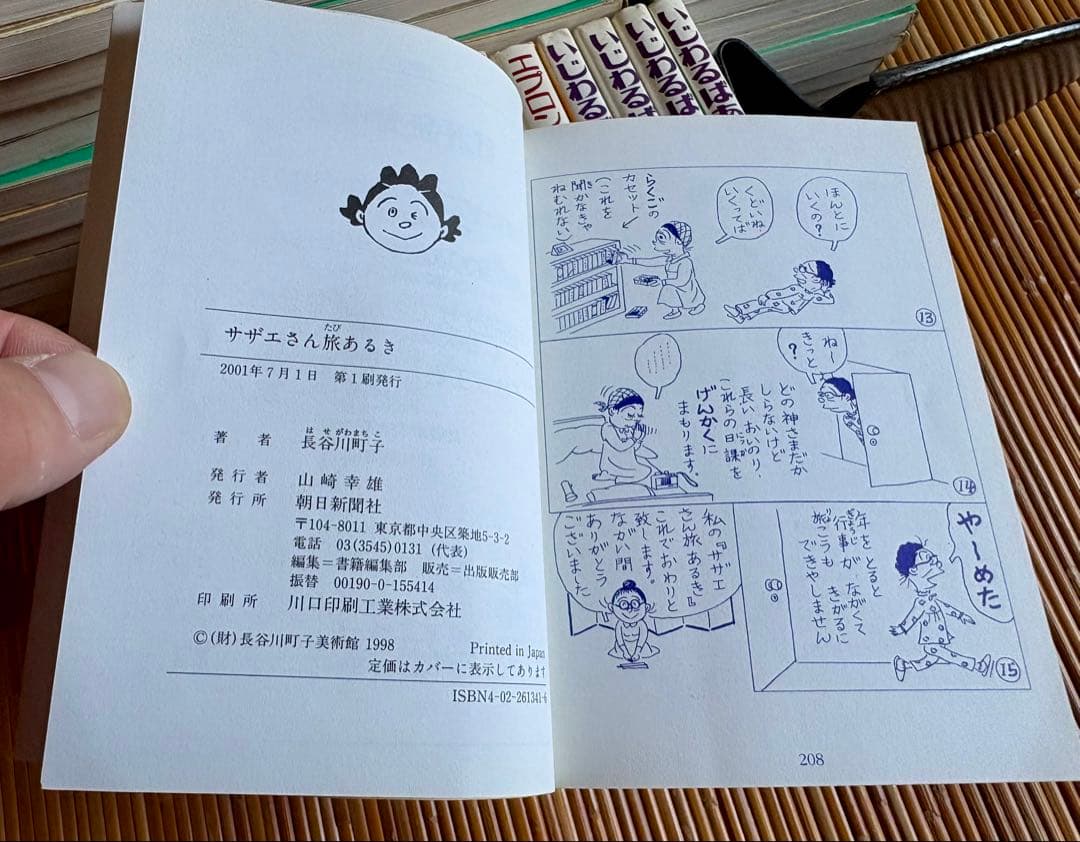 エプロン
いじわる
いじわる
いじわるば
いじわるばあ
サザエさん旅あるき
たび
2001年7月1日 第1刷発行
著者 長谷川町子
はせがわまちこ
発行者 山崎幸雄
発行所 朝日新聞社
〒104-8011 東京都中央区築地5-3-2
電話 03(3545)0131 (代表)
編集=書籍編集部 販売=出版販売部
振替 00190-0-155414
印刷所 川口印刷工業株式会社
©(財)長谷川町子美術館 1998
Printed in Japan
定価はカバーに表示してあります
ISBN4-02-261341-6
ほんとに
いくの?
くどいね
いくってば
らくごの
カセット
(これを
聞かなきゃ
き
ねむれない)
13
ねー
きっと
?
どの神さまだか
しらないけど
長い、おいのり、
これらの日課を
にっか
げんかくに
まもります。
…………
…………
14
やーめた
年をとると
行事が ながくて
ぎょうじ
旅こうも きがるに
りょ
できやしません
15
私の『サザエ
さん旅あるき』
これでおわりと
致します。
ながい間
ありがとう
ございました
208